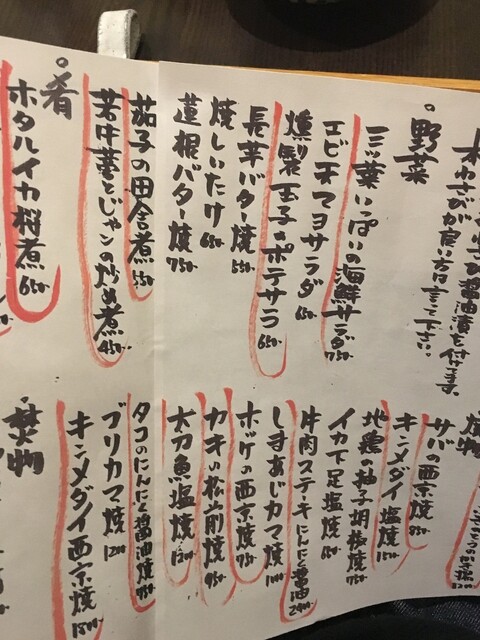 本わさびが良い方は言って下さい。
野菜
三ッ葉いっぱいの海鮮サラダ 750-
エビ天マヨサラダ 650-
燻り製玉子のポテサラ 650-
長芋バター焼 550-
焼しいたけ 650-
蓮根バター焼 750-
茄子の田舎煮 550-
若牛蒡とじゃこの炒め煮 450-
肴
ホタルイカ桜煮 650-
焼物
サバの西京焼 850-
キンメダイ塩焼 1500-
地鶏の柚子胡椒焼 750-
イカ下足塩焼 650-
牛肉ステーキにんにく醤油 2400-
しまあじカマ焼 1000-
ホッケの西京焼 750-
カキの松前焼 950-
太刀魚塩焼 1200-
タコのにんにく醤油焼 750-
ブリカマ焼 1200
キンメダイ西京焼 1500-
焚物